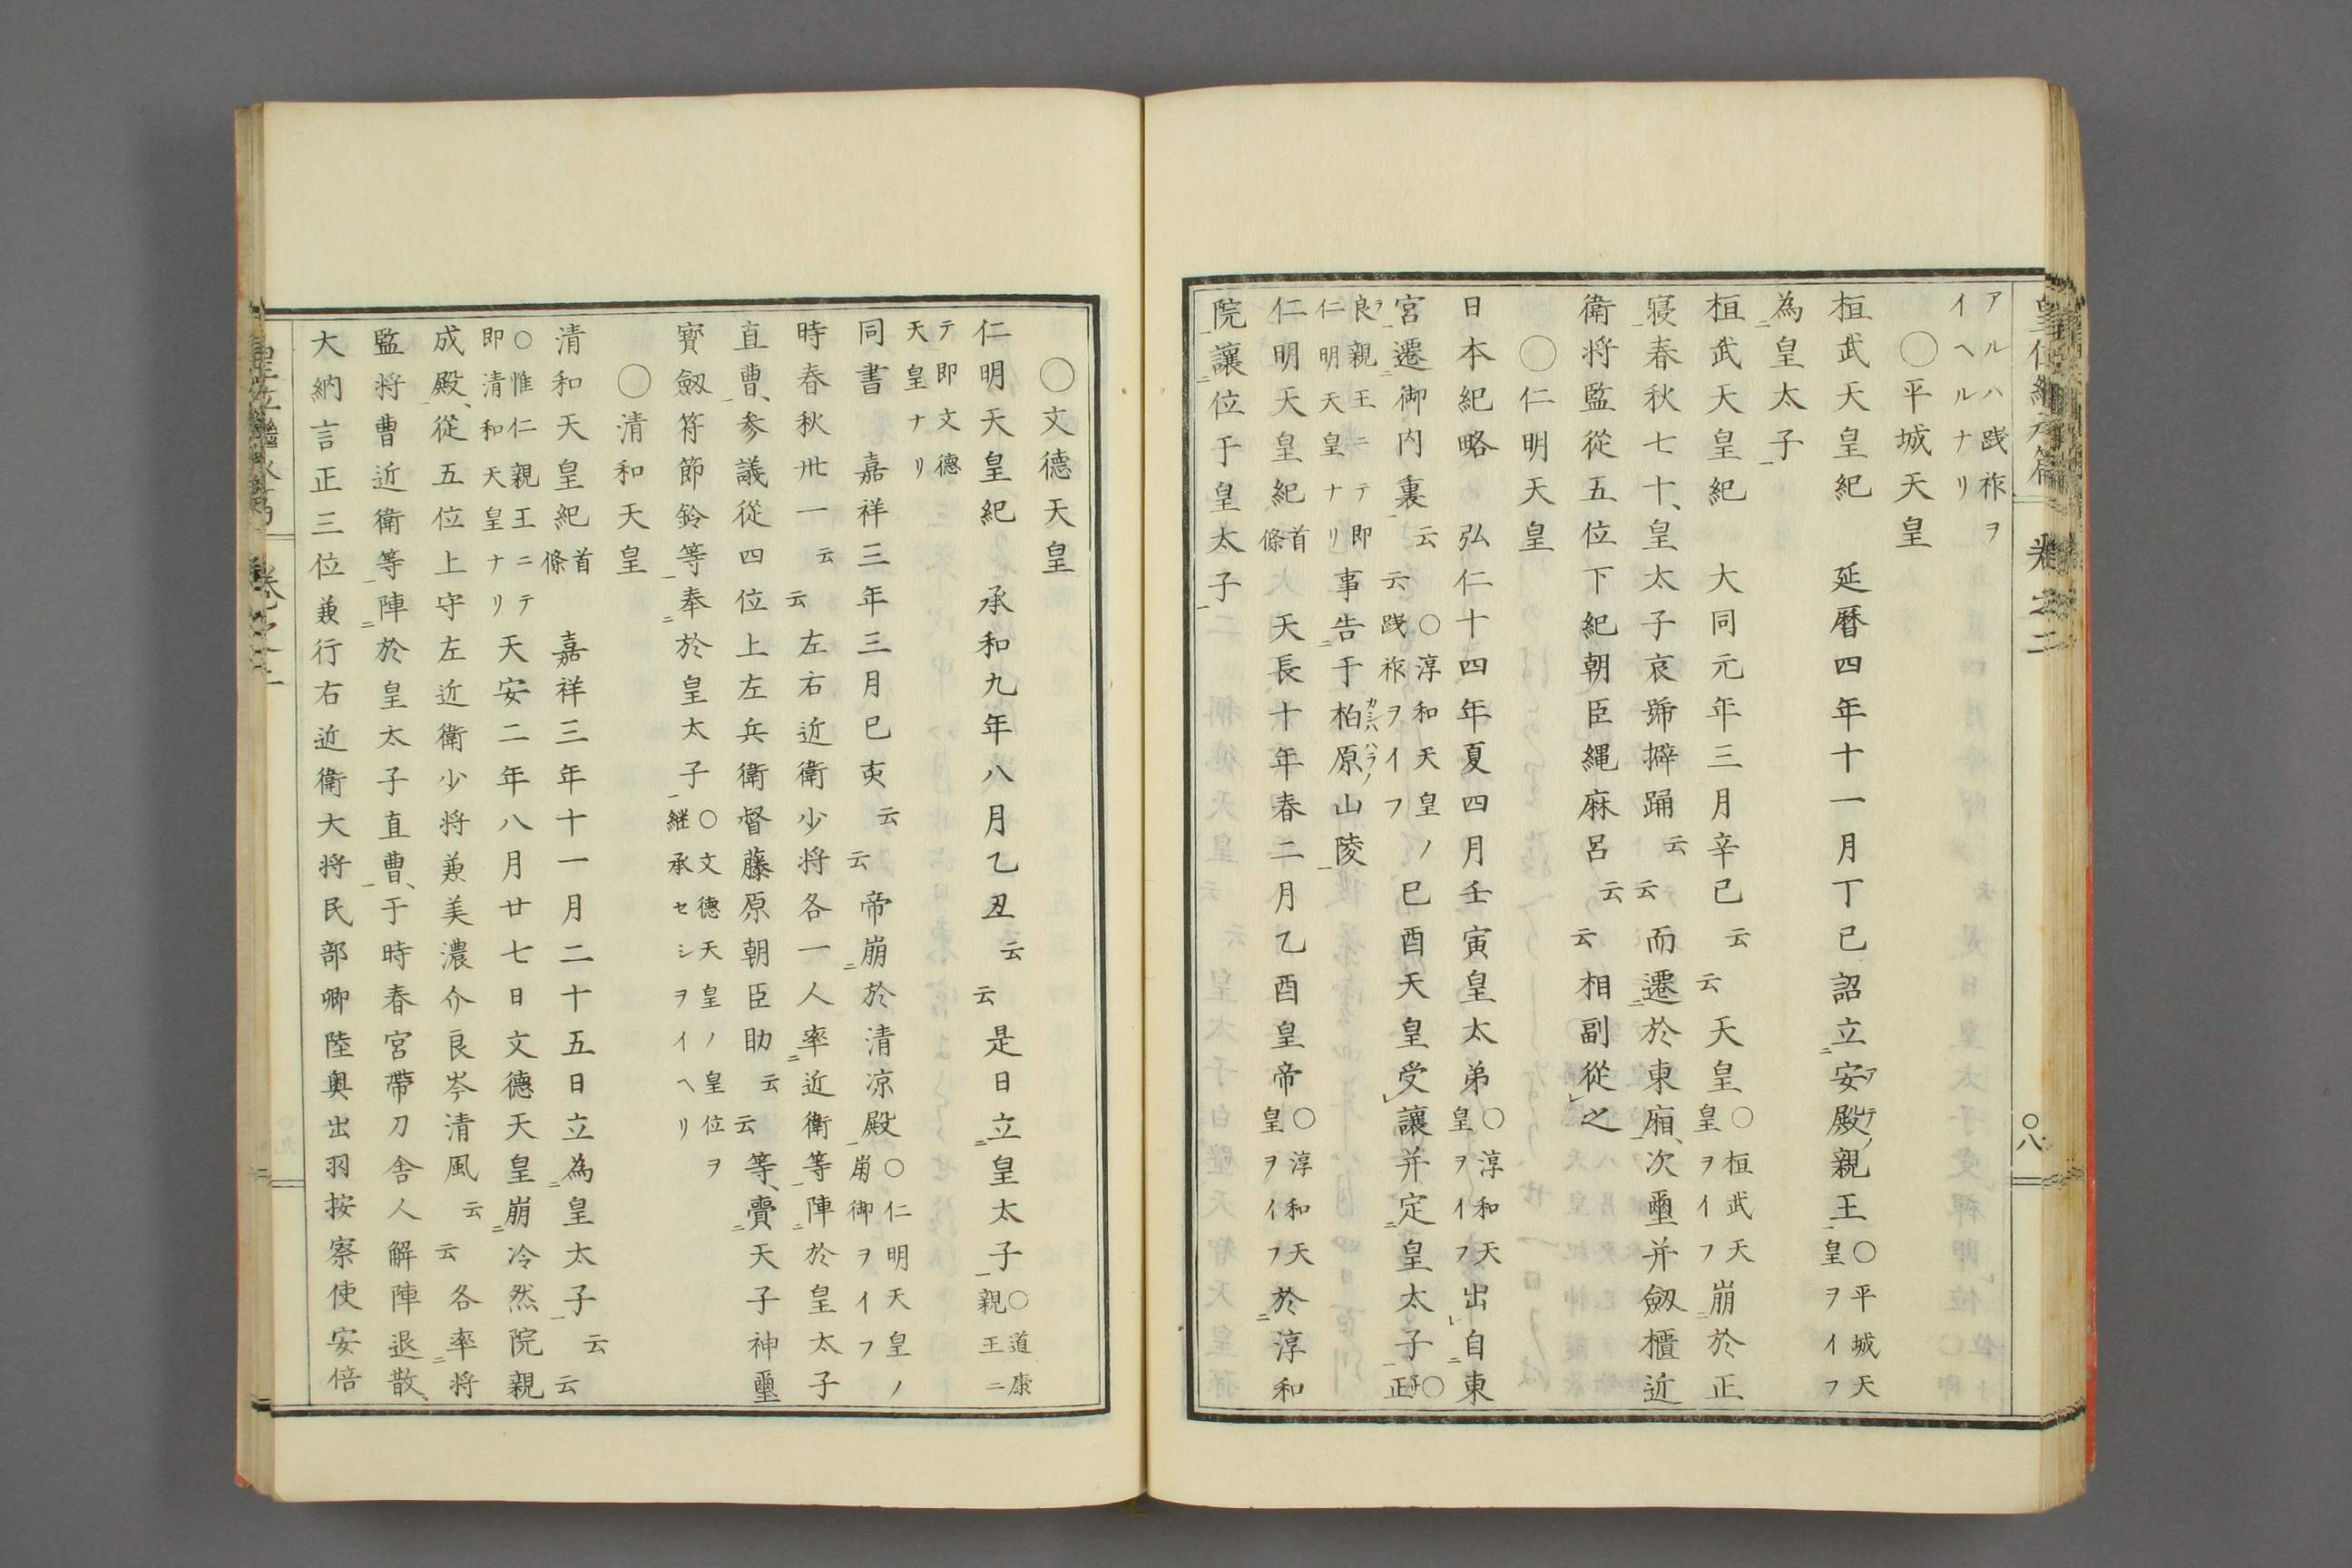 皇位継承篇 巻之二 ○八
アルハ践祚ヲ
イヘルナリ
○平城天皇
桓武天皇紀 延暦四年十一月丁巳詔立安殿親王○平城天皇ヲイフ
為皇太子
桓武天皇紀 大同元年三月辛巳云云天皇○桓武天皇ヲイフ崩於正
寝春秋七十、皇太子哀号擗踊云云而遷於東廂、次璽并劔櫃近
衛将監従五位下紀朝臣縄麻呂云云相副従之
○仁明天皇
日本紀略 弘仁十四年夏四月壬寅皇太弟○淳和天皇ヲイフ出自東
宮遷御内裏云云○淳和天皇ノ践祚ヲイフ巳酉天皇受譲并定皇太子○正
良親王ニテ即仁明天皇ナリ事告于柏原山陵
仁明天皇紀首條 天長十年春二月乙酉皇帝○淳和天皇ヲイフ於淳和
院譲位于皇太子
○文徳天皇
仁明天皇紀 承和九年八月乙丑云云是日立皇太子○道康親王ニ
テ即文徳天皇ナリ
同書 嘉祥三年三月己亥云云帝崩於清凉殿○仁明天皇ノ崩御ヲイフ
時春秋卅一云云左右近衛少将各一人率近衛等陣於皇太子
直曹、参議従四位上左兵衛督藤原朝臣助云云等、賚天子神璽
寳劔符節鈴等奉於皇太子○文徳天皇ノ皇位ヲ継承セシヲイヘリ
○清和天皇
清和天皇紀首條 嘉祥三年十一月二十五日立為皇太子云云
○惟仁親王ニテ即清和天皇ナリ天安二年八月廿七日文徳天皇崩冷然院親
成殿、従五位上守左近衛少将兼美濃介良岑清風云云各率将
監将曹近衛等陣於皇太子直曹、于時春宮帯刀舎人解陣退散、
大納言正三位兼行右近衛大将民部卿陸奥出羽按察使安倍